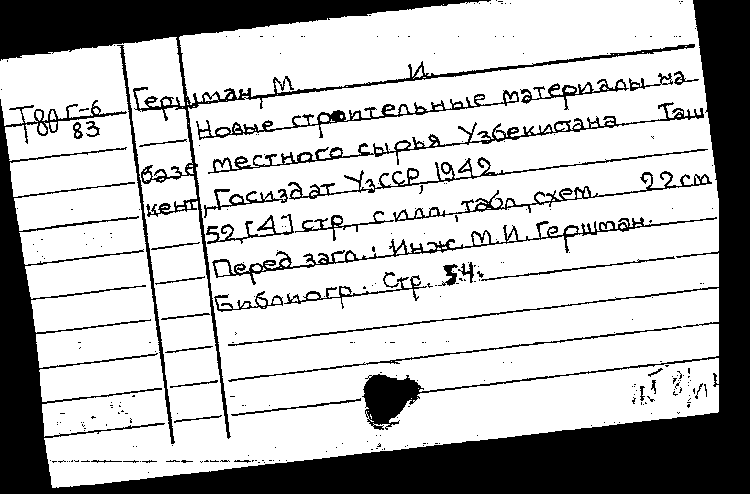 Гершман, М. И.
Т80 Г-6
83
Новые строительные материалы на
базе местного сырья Узбекистана Таш-
кент, Госиздат УзССР, 1942.
52, [4] стр., с илл., табл., схем. 22 см
Перед загл.: Инж. М.И. Гершман.
Библиогр.: Стр. 54.